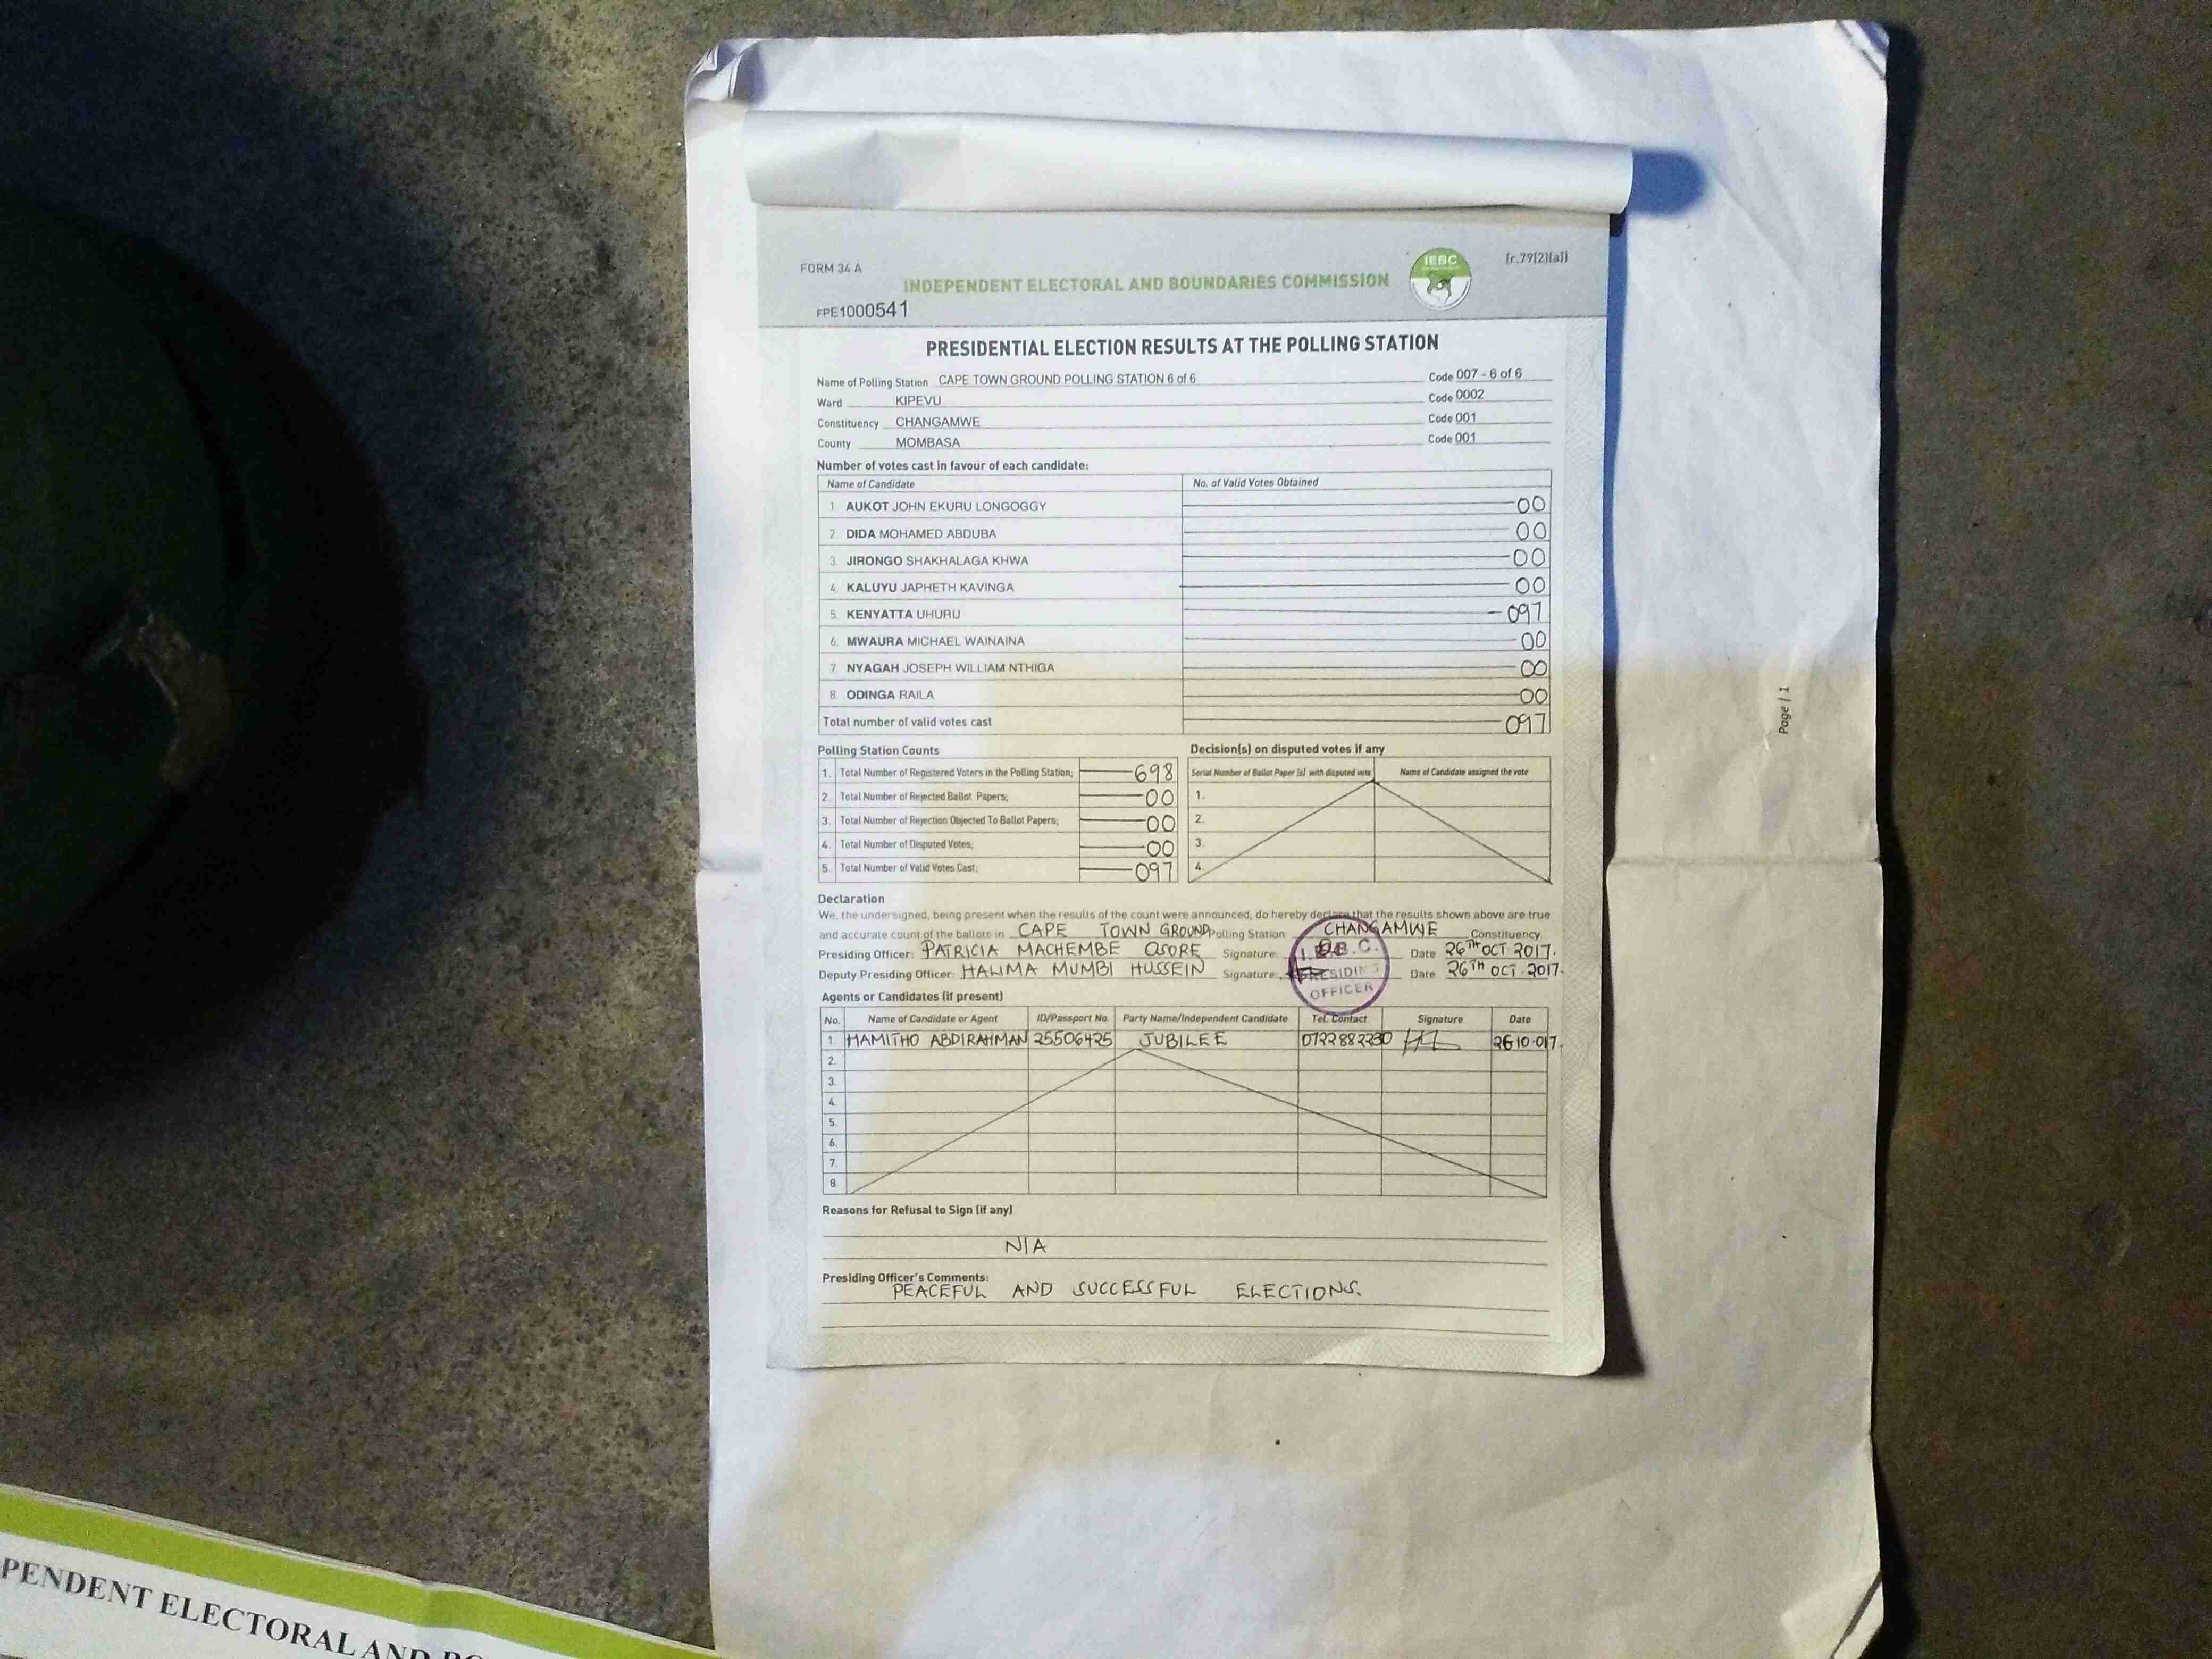 FORM 34 A
[r.79[2][a]]
IEBC
INDEPENDENT ELECTORAL AND BOUNDARIES COMMISSION
FPE1000541
PRESIDENTIAL ELECTION RESULTS AT THE POLLING STATION
Name of Polling Station CAPE TOWN GROUND POLLING STATION 6 of 6 Code 007 - 6 of 6
Ward KIPEVU Code 0002
Constituency CHANGAMWE Code 001
County MOMBASA Code 001
Number of votes cast in favour of each candidate:
Name of Candidate No. of Valid Votes Obtained
1. AUKOT JOHN EKURU LONGOGGY 00
2. DIDA MOHAMED ABDUBA 00
3. JIRONGO SHAKHALAGA KHWA 00
4. KALUYU JAPHETH KAVINGA 00
5. KENYATTA UHURU 097
6. MWAURA MICHAEL WAINAINA 00
7. NYAGAH JOSEPH WILLIAM NTHIGA 00
8. ODINGA RAILA 00
Total number of valid votes cast 097
Polling Station Counts
1. Total Number of Registered Voters in the Polling Station; 698
2. Total Number of Rejected Ballot Papers; 00
3. Total Number of Rejection Objected To Ballot Papers; 00
4. Total Number of Disputed Votes; 00
5. Total Number of Valid Votes Cast; 097
Decision(s) on disputed votes if any
Serial Number of Ballot Paper (s) with disputed vote Name of Candidate assigned the vote
1.
2.
3.
4.
Declaration
We, the undersigned, being present when the results of the count were announced, do hereby declare that the results shown above are true
and accurate count of the ballots in CAPE TOWN GROUND Polling Station CHANGAMWE Constituency
Presiding Officer: PATRICIA MACHEMBE OSORE Signature: Date 26TH OCT. 2017.
Deputy Presiding Officer: HALIMA MUMBI HUSSEIN Signature: Date 26TH OCT. 2017.
I.E.B.C.
PRESIDING
OFFICER
Agents or Candidates (if present)
No. Name of Candidate or Agent ID/Passport No. Party Name/Independent Candidate Tel. Contact Signature Date
1. HAMITHO ABDIRAHMAN 25506425 JUBILEE 0722882230 26·10·017.
2.
3.
4.
5.
6.
7.
8.
Reasons for Refusal to Sign (if any)
N/A
Presiding Officer's Comments:
PEACEFUL AND SUCCESSFUL ELECTIONS.
Page | 1
PENDENT ELECTORAL AND